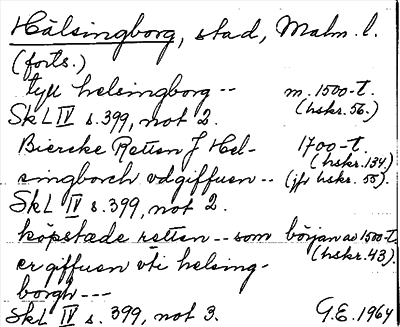 Hälsingborg, stad, Malm. l.
(forts.)
tyll helsingborg -- m. 1500-t.
(hskr. 56.)
SkL IV s. 399, not 2.
Bierske Retten J Hel- 1700-t.
(hskr. 134.)
singborch vdgiffuen -- (jfr hskr. 55).
SkL IV s. 399, not 2.
köpstæde rætten -- som början av 1500-t.
(hskr. 43).
er giffuen vti helsing-
borgh ---
SkL IV s. 399, not 3. G.E. 1964